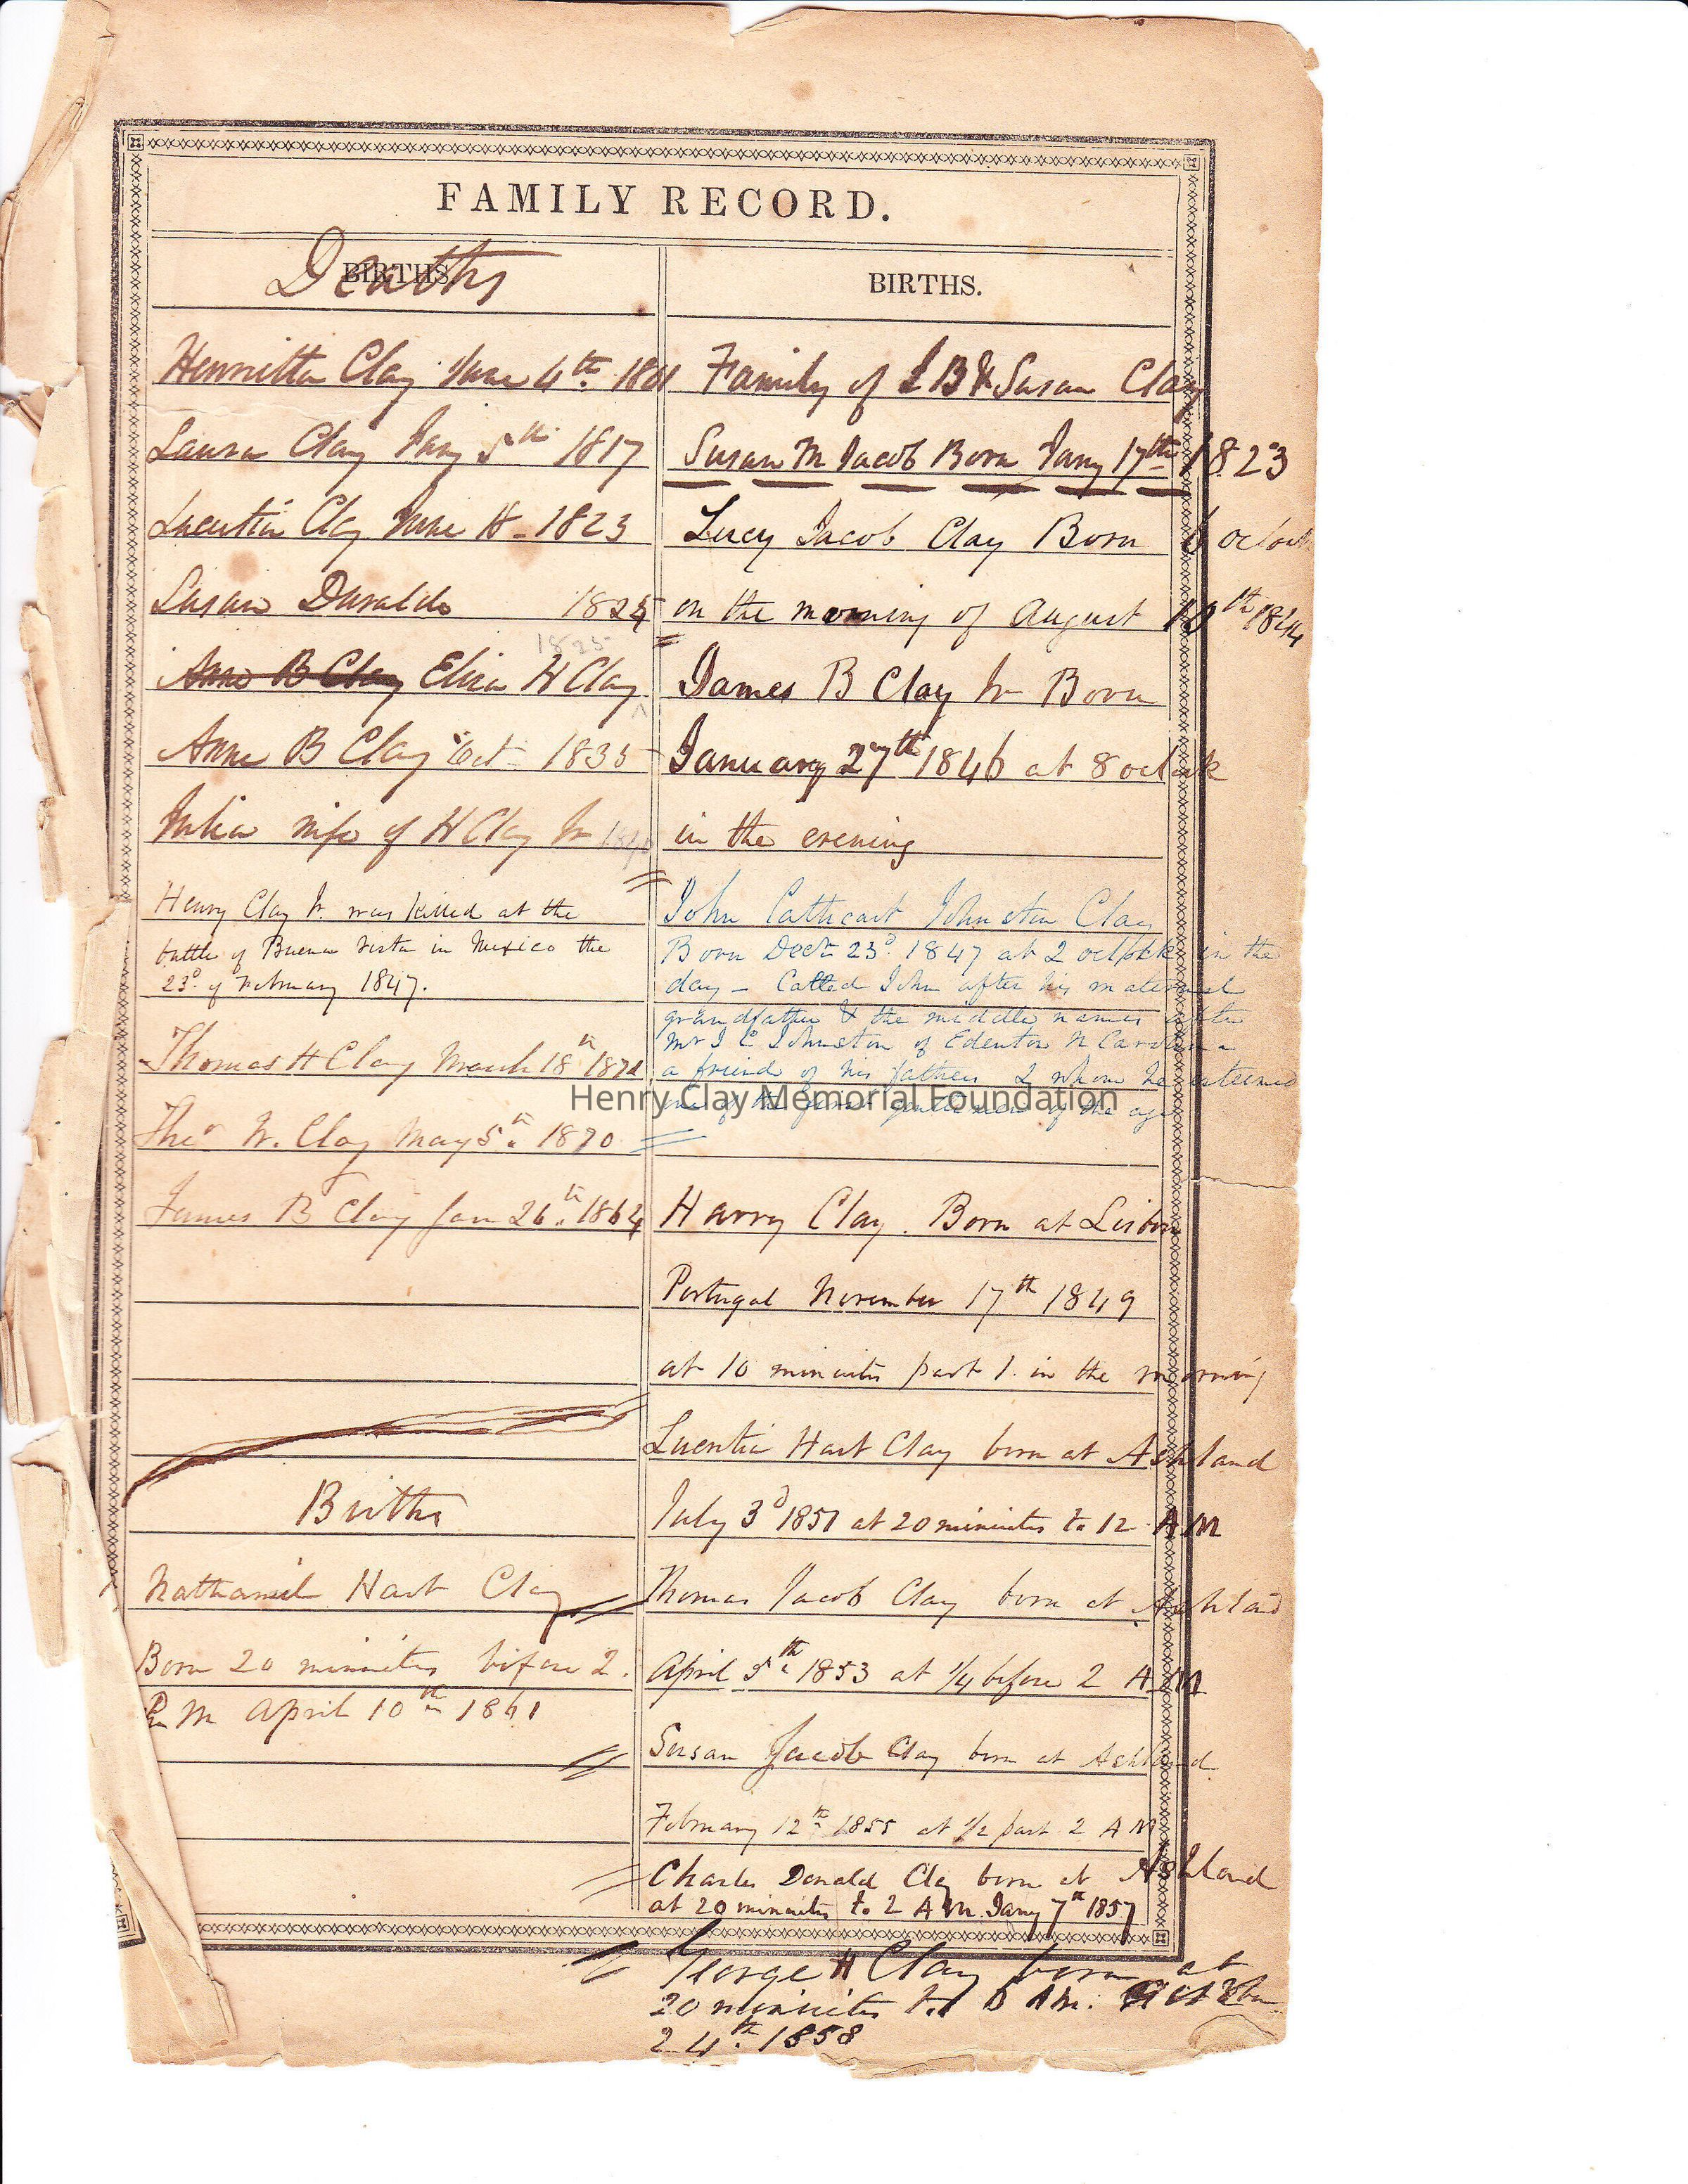 FAMILY RECORD.
BIRTHS.
Deaths
Henrietta Clay June 4th. 1801
Laura Clay Jany 5th 1817
Lucretia Clay June 18 - 1823
Susan Duralde 1825
1825
Anne B Clay Eliza H Clay
Anne B Clay Oct 1835
Julia wife of H Clay Jr 1840
Henry Clay Jr. was killed at the
battle of Buena Vista in Mexico the
23d. of February 1847.
Thomas H Clay March 18th 1871
Theo W. Clay May 5th. 1870
James B Clay Jan 26th. 1864
Births
Nathaniel Hart Clay
Born 20 minuites before 2.
P. M April 10th 1861
BIRTHS.
Family of J B & Susan Clay
Susan M Jacob Born Jany 17th 1823
Lucy Jacob Clay Born 6 oclock
on the morning of August 10th 1844
James B Clay Jr Born
January 27th 1846 at 8 oclock
in the evening
John Cathcart Johnston Clay
Born Decr 23d. 1847 at 2 oclock in the
day - Called John after his maternal
grandfather & the middle names after
Mr J C Johnston of Edenton N Carolina
a friend of his fathers & whom he esteemed
one of the first gentlemen of the age
Henry Clay Memorial Foundation
Harry Clay. Born at Lisbon
Portugal November 17th 1849
at 10 minuites past 1. in the morning
Lucretia Hart Clay born at Ashland
July 3d 1851 at 20 minuites to 12 A M
Thomas Jacob Clay born at Ashland
April 5th 1853 at 1/4 before 2 A M
Susan Jacob Clay born at Ashland
February 12th 1855 at 1/2 past 2 A M
Charles Donald Clay born at Ashland
at 20 minuites to 2 A M. Jany 7th 1857
George H Clay born at
20 minuites to 6 AM. October
24th. 1858